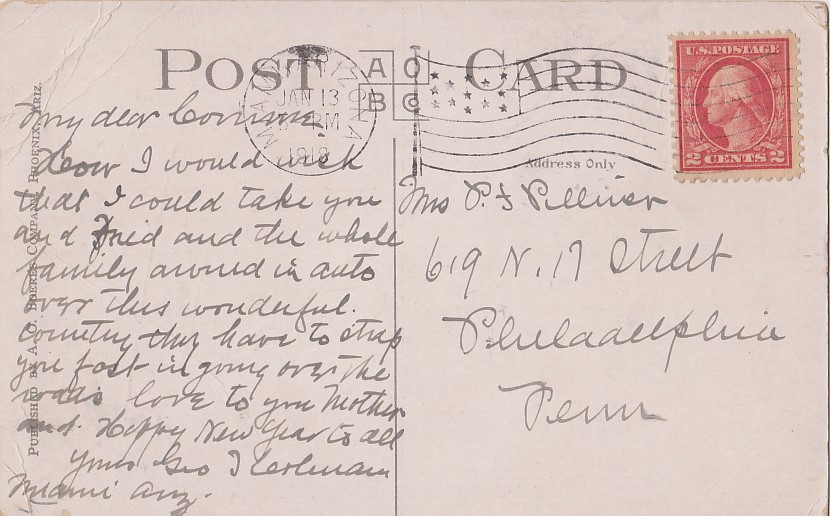 POST CARD
A O
B C
MIAMI ARIZONA
JAN 13
PM
1918
U.S. POSTAGE
2 CENTS 2
Address Only
PUBLISHED BY A. O. BOERES COMPANY, PHOENIX, ARIZ.
My dear Corinne,
How I would wish
that I could take you
and Fried and the whole
family around in auto
over this wonderful.
Country they have to strap
you fast in going over the
roads love to you Mother
and. Happy New Year to all
yours Geo
Miami Ariz.
Mrs P. F
619 N. 17 Street
Philadelphia
Penn